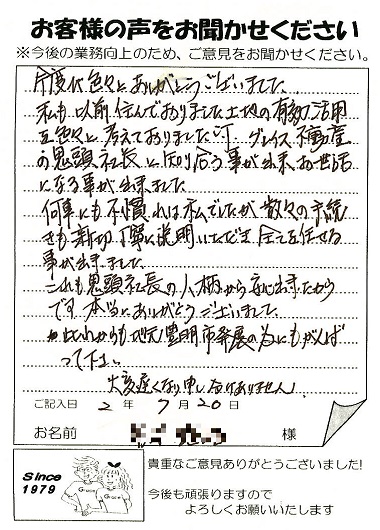 お客様の声をお聞かせください
※今後の業務向上のため、ご意見をお聞かせください。
今度は色々とありがとうございました。
私も以前住んでおりました土地の有効活用
を色々と考えておりましたが、グレイス不動産
の鬼頭社長と知り合う事が出来、お世話
になる事が出来ました。
何事にも不慣れな私でしたが数々の手続
きも親切丁寧に説明いただき全てを任せる
事が出来ました。
これも鬼頭社長の人柄から 出来たから
です。本当にありがとうございました。
これからも地元豊明市発展の為にもがんば
って下さい。
大変遅くなり申し訳ありません。
ご記入日 2年 7月 20日
お名前 様
Since
1979
貴重なご意見ありがとうございました!
今後も頑張りますので
よろしくお願いいたします